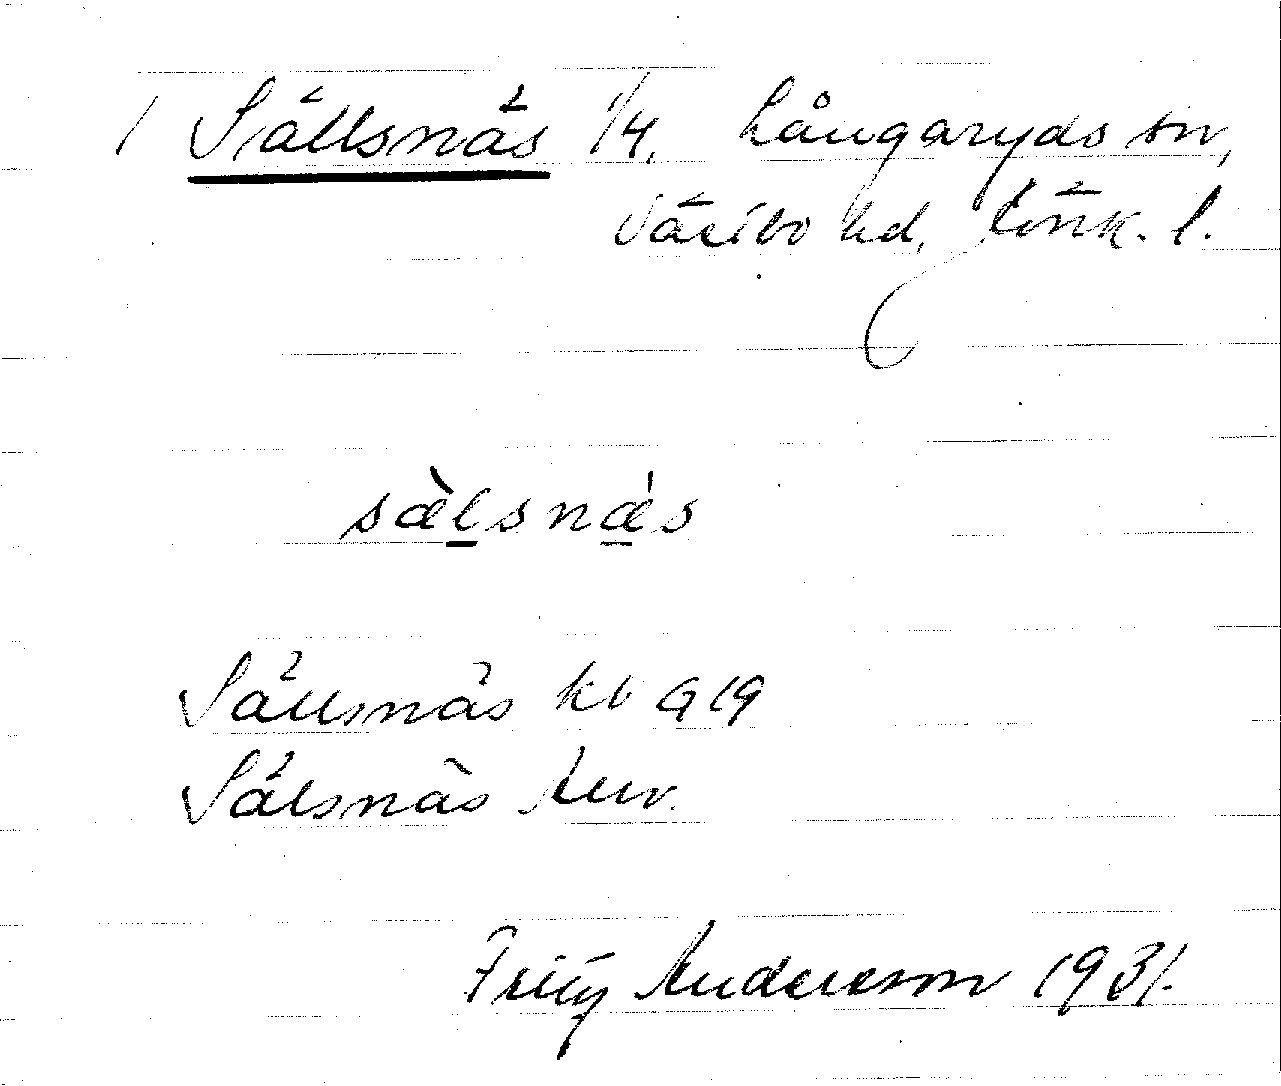 / Sällsnäs 1/4. Långaryds sn,
Västbo hd, Jönk. l.
sæ̀lsnæ̀s
Sällsnäs kb G 19
Sälsnäs
Fritz Anderson 1931.